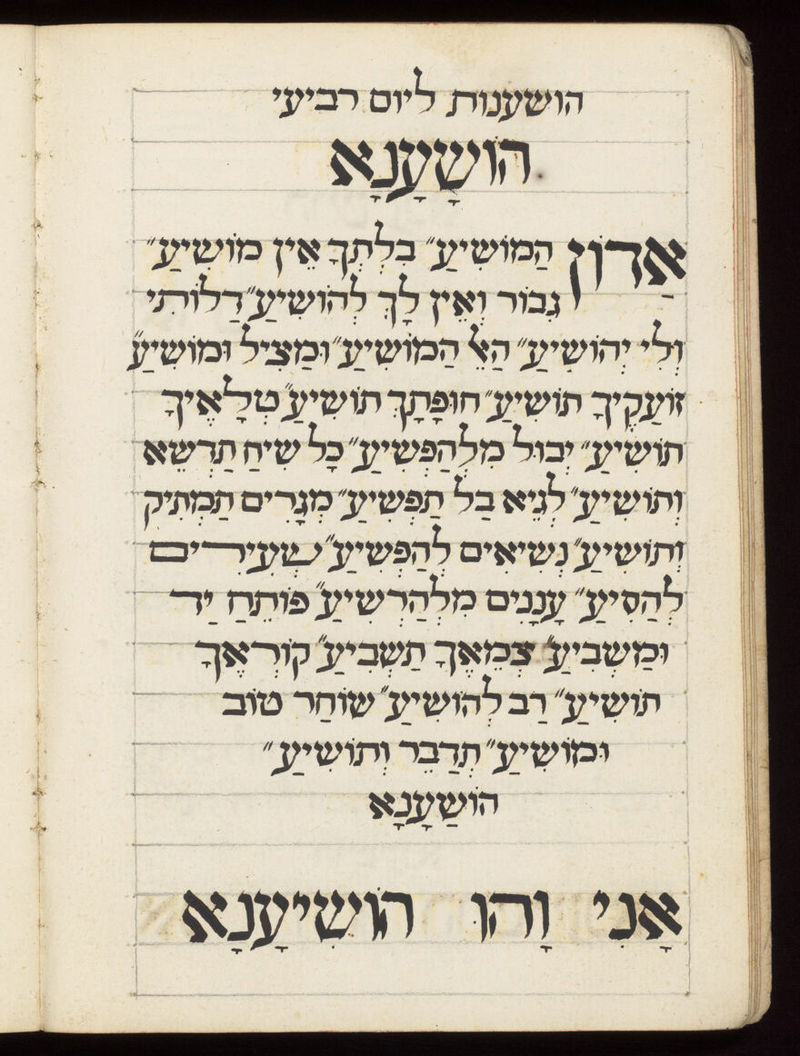 הושענות ליום רביעי
הוֹשָׁעֲנָא
אָדוֹן הַמוֹשִׁיעַ״ בִּלְתְּךָ אֵין מוֹשִׁיעַ״
גִבּוֹר וְאֵין לָךְ לְהוֹשִׁיעַ״ דַלוֹתִי
וְלִי יְהוֹשִׁיעַ״ הָאֵל הַמוֹשִׁיעַ״ וּמַצִיל וּמוֹשִׁיעַ״
זוֹעֲקֶיךָ תּוֹשִׁיעַ״ חוּפָתָךְ תּוֹשִׁיעַ״ טְלָאֶיךָ
תּוֹשִׁיעַ״ יְבוּל מִלְהַפְשִׁיעַ״ כָּל שִׂיחַ תַּדְשֵׁא
וְתוֹשִׁיעַ״ לְגֵיא בַּל תַפְשִׁיעַ״ מְגָדִים תַּמְתִּיק
וְתוֹשִׁיעַ״ נְשִׂיאִים לְהַפְשִׁיעַ״ שְׂעִירִים
לְהַסִיעַ״ עֲנָנִים מִלְהַרְשִׁיעַ״ פּוֹתֵחַ יַד
וּמַשְׂבִּיעַ״ צְמֵאֶךָ תַּשְׂבִּיעַ״ קוֹרְאֶךָ
תּוֹשִׁיעַ״ רַב לְהוֹשִׁיעַ״ שׁוֹחַר טוֹב
וּמוֹשִׁיעַ״ תְּדַבֵּר וְתוֹשִׁיעַ״
הוֹשַׁעֲנָא
אֲנִי וָהוּ הוֹשִׁיעָנָא